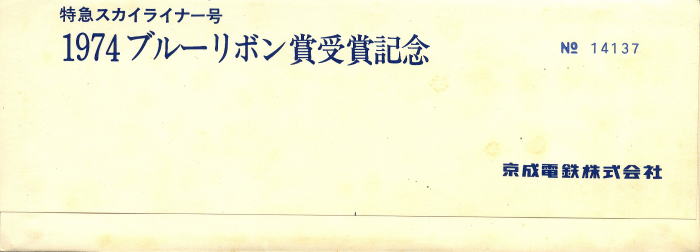 特急スカイライナー号
1974ブルーリボン賞受賞記念
№ 14137
京成電鉄株式会社